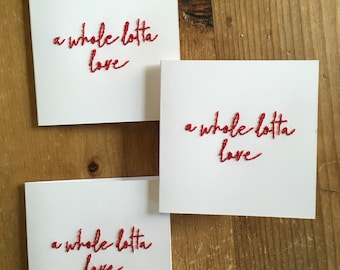 a whole lotta
love
a whole lotta
love
a whole lotta
love